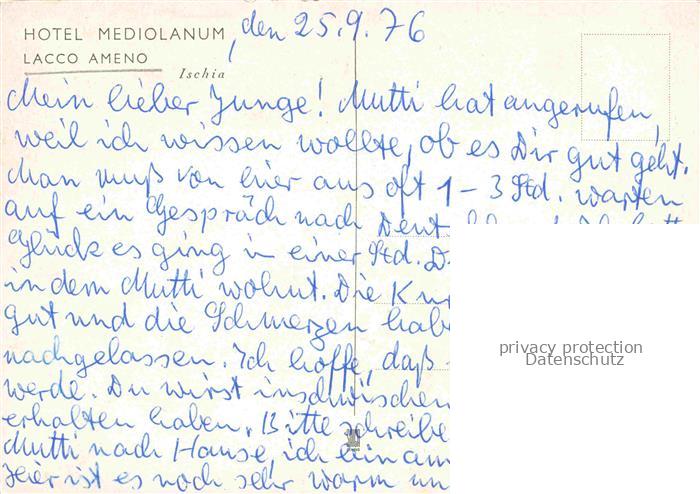 HOTEL MEDIOLANUM, den 25.9.76
LACCO AMENO
Ischia
Mein lieber Junge! Mutti hat angerufen,
weil ich wissen wollte, ob es Dir gut geht.
Man muß von hier aus oft 1-3 Std. warten
auf ein Gespräch nach Deut
Glück es ging in einer Std. D
in dem Mutti wohnt. Die Kur
gut und die Schmerzen hab
nachgelassen. Ich hoffe, daß
werde. Du wirst inschwischen
erhalten haben. Bitte schreibe
Mutti nach Hause, ich bin am
Hier ist es noch sehr warm un
privacy protection
Datenschutz